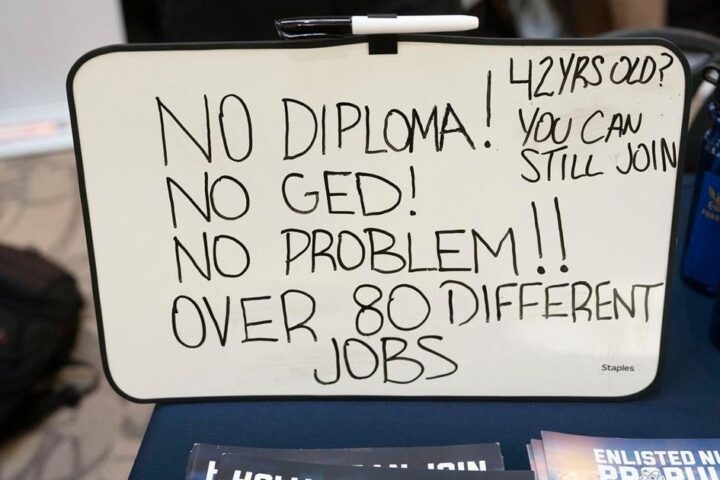 NO DIPLOMA!
NO GED!
NO PROBLEM!!
OVER 80 DIFFERENT
JOBS
42 YRS OLD?
YOU CAN
STILL JOIN
Staples
JOIN
ENLISTED